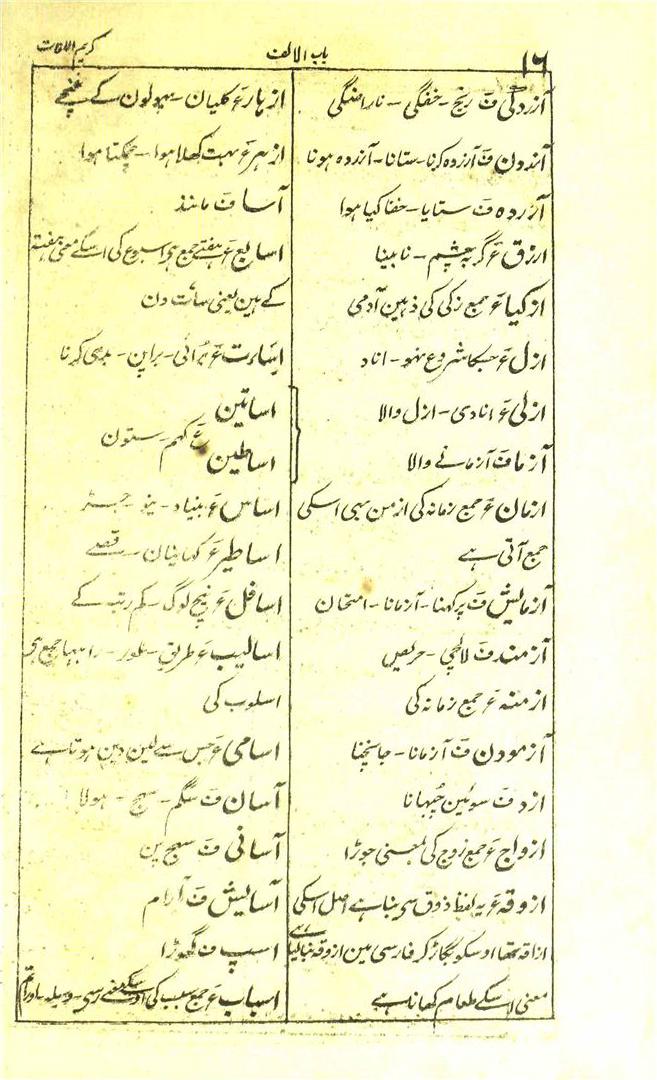 ١٦ باب الالف کریم اللغات
آزردگی ف رنج - خفگی - ناراضگی
آزردن ف آزردہ کرنا - ستانا - آزردہ ہونا
آزردہ ف ستایا - خفا کیا ہوا
ازرق ع گربہ چشم - نابینا
ازکیا ع جمع زکی کی ذہین آدمی
ازل ع جسکا شروع نہو - اناد
ازلی ع انادی - ازل والا
آزما ف آزمانے والا
ازمان ع جمع زمانہ کی ازمن بہی اسکی
جمع آتی ہے
آزمایش ف پرکہنا - آزمانا - امتحان
آزمند ف لالچی - حریص
ازمنہ ع جمع زمانہ کی
آزمودن ف آزمانا - جانچنا
ازد ف سوئین چبہانا
ازواج ع جمع زوج کی بمعنی جوڑا
ازوقہ ع یہ لفظ ذوق سی بنا ہے اصل اسکی
ازاقہ تہا اوسکو بگاڑ کر فارسی مین ازوقہ بنالیا ہے
معنی اسکے طعام کہانا ہے
ازہار ع کلیان - پہولون کے غنچے
ازہر ع بہت کھلا ہوا - چمکتا ہوا
آسا ف مانند
اسابیع ع ہفتے جمع ہی اسبوع کی اسکے معنی ہفتہ
کے ہین یعنی سات دن
اساءت ع برائی - براپن - بدی کرنا
اساتین
اساطین ع کہم - ستون
اساس ع بنیاد - نیو - جڑ
اساطیر ع کہانیان - قصے
اسافل ع نیچ لوگ - کم رتبہ کے
اسالیب ع طریق - طور - راہیں جمع ہی
اسلوب کی
اسامی ع جس سے لین دین ہوتا ہے
آسان ف سگم - سہج - ہولا
آسانی ف سہج پن
آسایش ف آرام
اسپ ف گہوڑا
اسباب ع جمع سبب کی اوسکے معنے رسی - وسیلہ